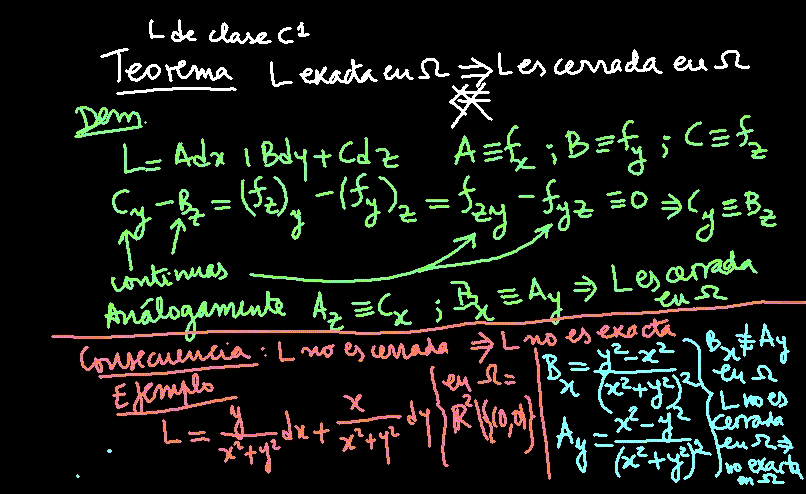 L de clase C¹
Teorema L exacta en Ω ⇒ L es cerrada en Ω
⇍
Dem.
L = Adx + Bdy + Cdz A ≡ f_x ; B ≡ f_y ; C ≡ f_z
C_y − B_z = (f_z)_y − (f_y)_z = f_zy − f_yz ≡ 0 ⇒ C_y ≡ B_z
continuas
Análogamente A_z ≡ C_x ; B_x ≡ A_y ⇒ L es cerrada
en Ω
Consecuencia : L no es cerrada ⇒ L no es exacta
Ejemplo
L = y/(x²+y²) dx + x/(x²+y²) dy
en Ω =
ℝ²\{(0,0)}
B_x = (y²−x²)/(x²+y²)²
A_y = (x²−y²)/(x²+y²)²
B_x ≢ A_y
en Ω
L no es
cerrada
en Ω ⇒
no exacta
en Ω